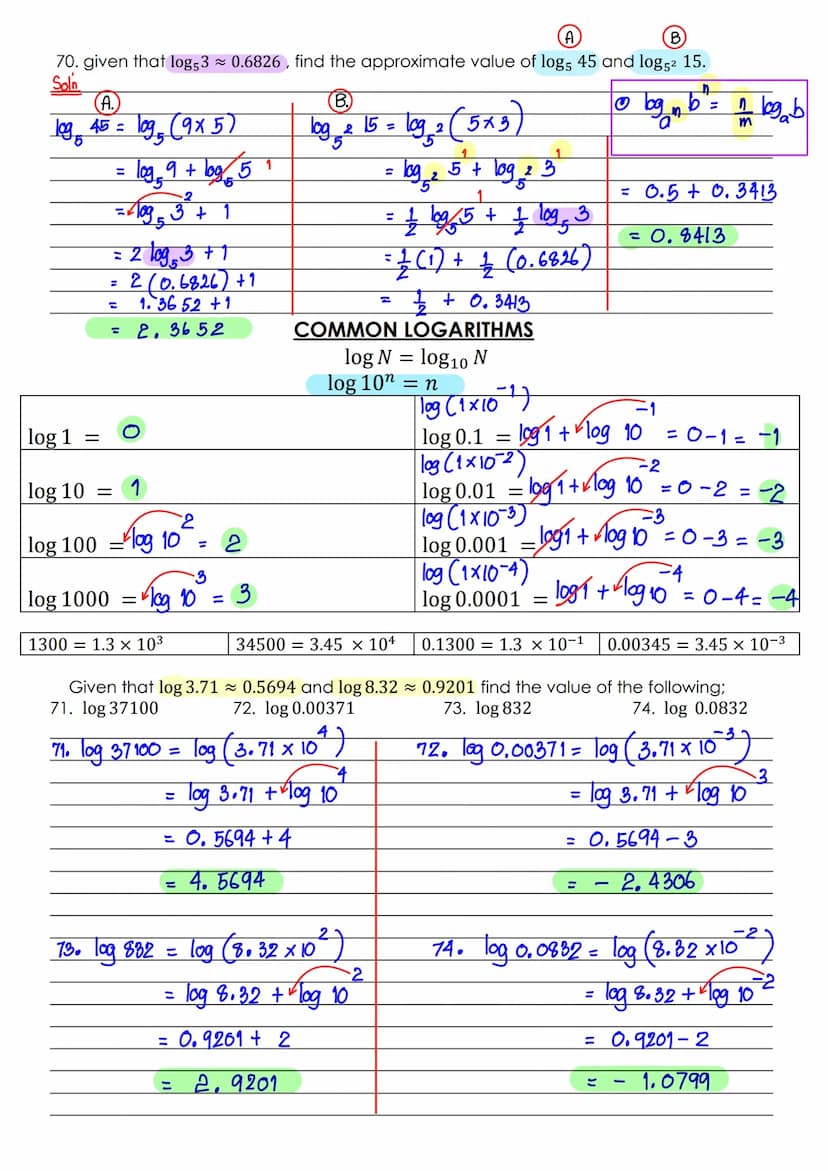 Ⓐ Ⓑ
70. given that log₅3 ≈ 0.6826 , find the approximate value of log₅ 45 and log₅² 15.
Sol'n
Ⓐ.
log₅ 45 = log₅ (9 x 5)
= log₅ 9 + log₅ 5 1
= log₅ 3² + 1
= 2 log₅ 3 + 1
= 2 (0.6826) +1
= 1.3652 +1
= 2.3652
Ⓑ.
log₅² 15 = log₅² (5 x 3)
= log₅² 5¹ + log₅² 3¹
= 1/2 log₅ 5 1 + 1/2 log₅ 3
= 1/2 (1) + 1/2 (0.6826)
= 1/2 + 0.3413
log_aᵐ bⁿ = n/m log_a b
= 0.5 + 0.3413
= 0.8413
COMMON LOGARITHMS
log N = log₁₀ N
log 10ⁿ = n
log 1 = 0
log (1x10⁻¹)
log 0.1 = log 1 + log 10⁻¹ = 0-1 = -1
log 10 = 1
log (1x10⁻²)
log 0.01 = log 1 + log 10⁻² = 0 - 2 = -2
log 100 = log 10² = 2
log (1x10⁻³)
log 0.001 = log 1 + log 10⁻³ = 0 - 3 = -3
log 1000 = log 10³ = 3
log (1x10⁻⁴)
log 0.0001 = log 1 + log 10⁻⁴ = 0-4 = -4
1300 = 1.3 × 10³ 34500 = 3.45 × 10⁴ 0.1300 = 1.3 × 10⁻¹ 0.00345 = 3.45 × 10⁻³
Given that log 3.71 ≈ 0.5694 and log 8.32 ≈ 0.9201 find the value of the following;
71. log 37100 72. log 0.00371 73. log 832 74. log 0.0832
71. log 37100 = log (3.71 x 10⁴)
= log 3.71 + log 10⁴
= 0.5694 + 4
= 4.5694
72. log 0.00371 = log (3.71 x 10⁻³)
= log 3.71 + log 10⁻³
= 0.5694 - 3
= - 2.4306
73. log 832 = log (8.32 x 10²)
= log 8.32 + log 10²
= 0.9201 + 2
= 2.9201
74. log 0.0832 = log (8.32 x10⁻²)
= log 8.32 + log 10⁻²
= 0.9201 - 2
= - 1.0799